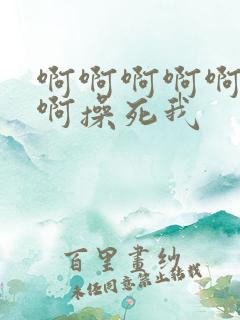 啊啊啊啊啊
啊操死我
百里畫紗
未经同意禁止转载